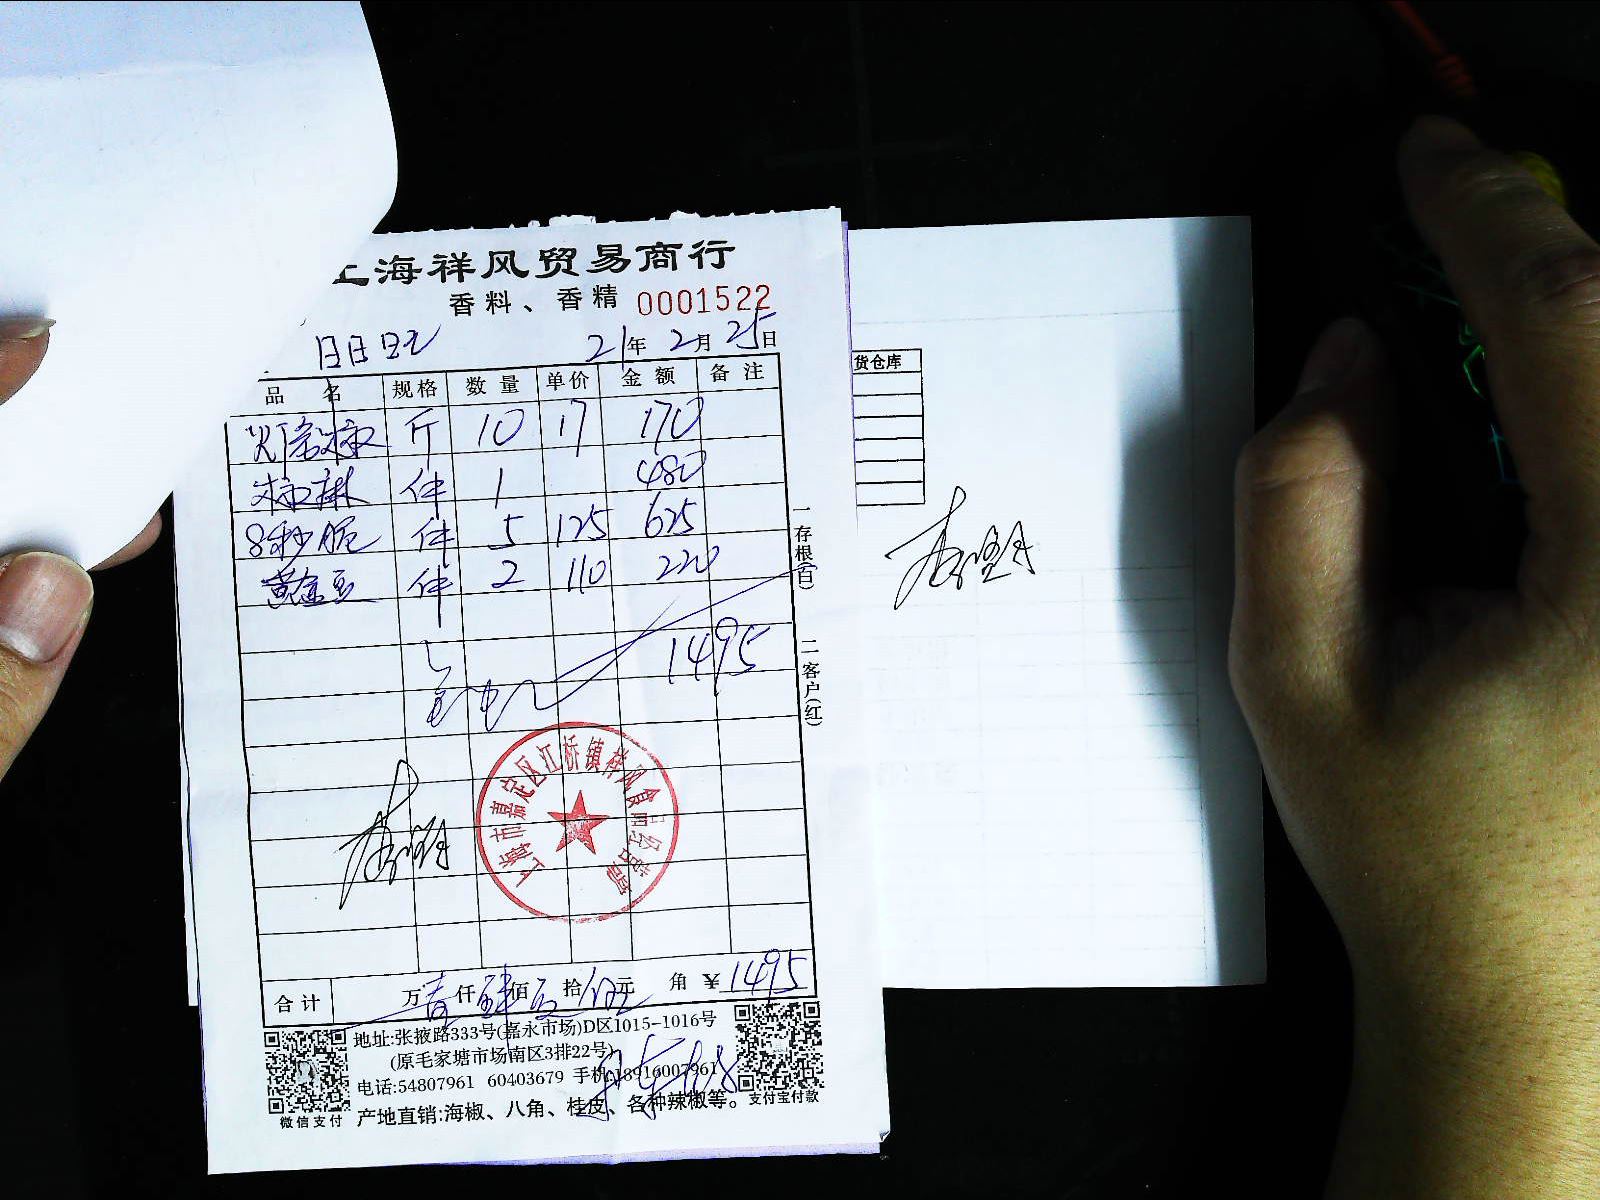 上海祥风贸易商行
香料、香精 0001522
21年 2月 25日
品名 规格 数量 单价 金额 备注
斤 10 17 170
件 1 480
8秒脆 件 5 125 625
黄金豆 件 2 110 220
1495
一存根(白) 二客户(红)
上海市嘉定区江桥镇祥风食品经营部
合计 万壹仟肆佰玖拾伍元 角 ¥1495
地址:张掖路333号(嘉永市场)D区1015-1016号
(原毛家塘市场南区3排22号)
电话:54807961 60403679 手机:18916007961
产地直销:海椒、八角、桂皮、各种辣椒等。
微信支付
支付宝付款
货仓库